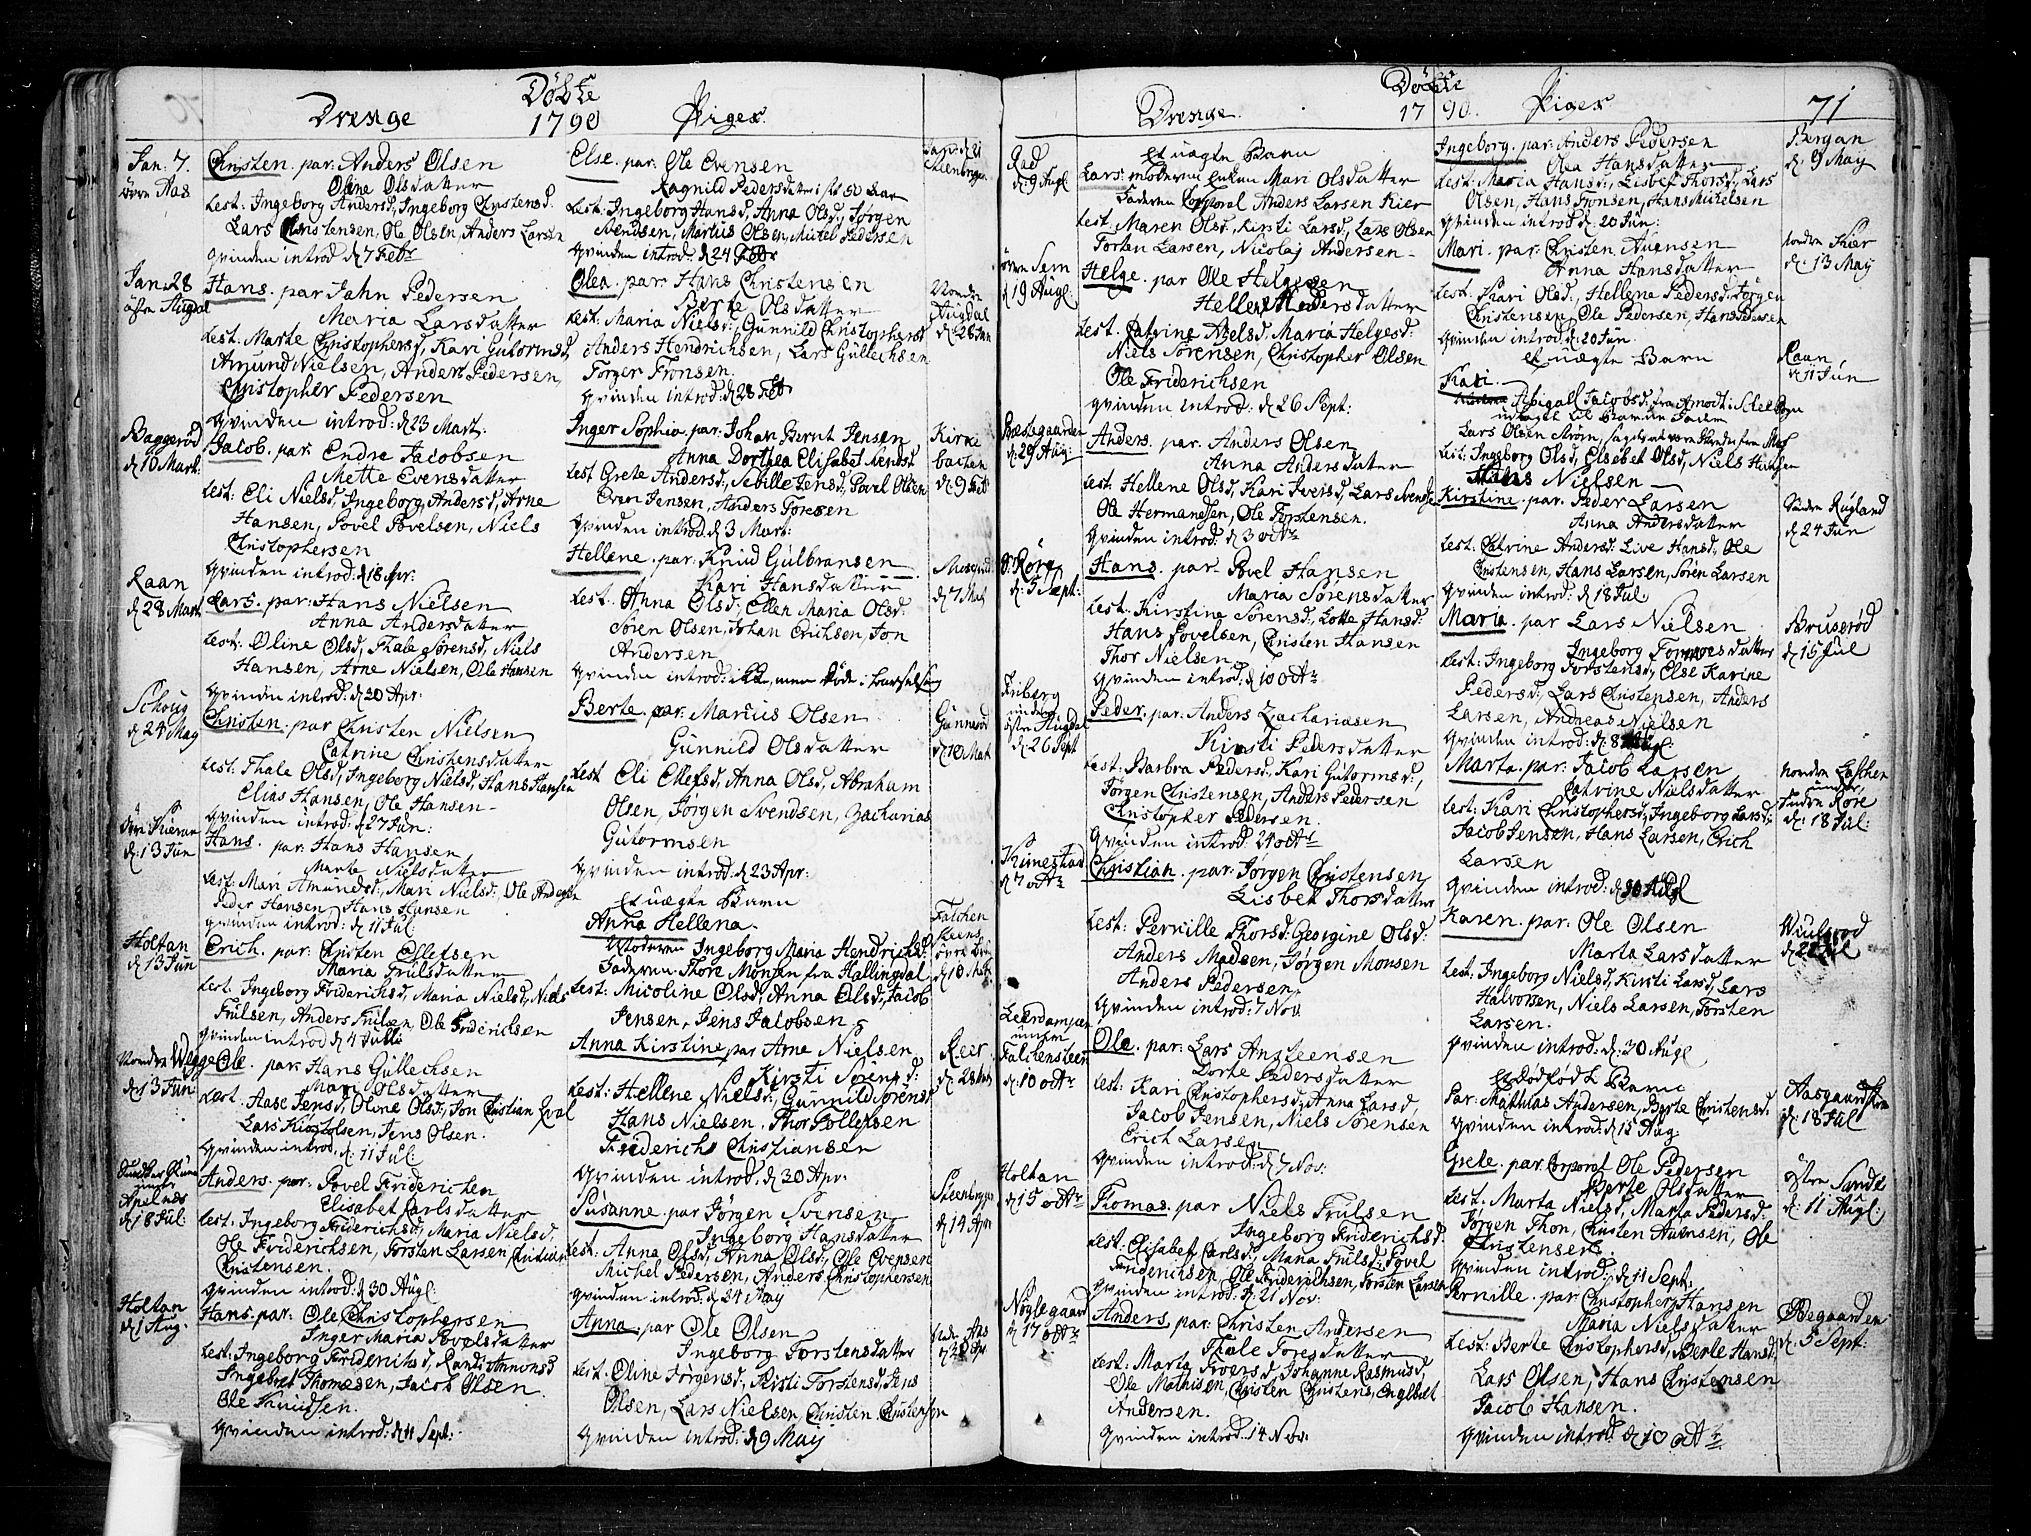 Döbte
Drenge 1790 Piger
Jan: 7.
övre Aas
Christen. par: Anders Olsen
Oline Olsdatter
test: Ingeborg Andersd:, Ingeborg Christensd:
Lars Christensen, Ole Olsen, Anders Larsen
Qvinden introd: d 7 Febr
Jan: 28
östre Augdal
Hans. par Jahn Pedersen
Maria Larsdatter
test: Marte Christophersd, Kari Gutormsd,
Amund Nielsen, Anders Pedersen,
Christopher Pedersen
Qvinden introd: d 23 Mart:
Baggerød
d 10 Mart:
Jacob. par: Endre Jacobsen
Mette Evensdatter
test: Eli Nielsd, Ingeborg Andersd, Arne
Hansen, Povel Povelsen, Niels
Christophersen
Qvinden introd: d 18 Apr:
Raan
d 28 Mart
Lars. par: Hans Nielsen
Anna Andersdatter
test: Oline Olsd, Thale Sørensd, Niels
Hansen, Arne Nielsen, Ole Hansen
Qvinden introd: d 20 Apr:
Schoug
d 24 May
Christen. par Christen Nielsen
Catrine Christensdatter
test: Thale Olsd, Ingeborg Nielsd, Hans Hansen
Elias Hansen, Ole Hansen
Qvinden introd: d 27 Jun:
d: 13 Jun
Hans. par: Hans Hansen
Marte Nielsdatter
test: Mari Amundsd, Mari Nielsd: Ole Andersen
Peder Hansen, Hans Hansen
Qvinden introd: d 11 Jul:
Holtan
d 13 Jun
Erich. par: Christen Ellefsen
Maria Trulsdatter
test: Ingeborg Friderichsd, Maria Nielsd, Niels
Trulsen, Anders Trulsen, Ole Friderichsen
Qvinden introd d 4 Julii
Nordre Wegge
d 13 Jun
Ole. par: Hans Gullechsen
Mari Olsdatter
test: Aase Jensd, Oline Olsd, Jon Christian
Lars Jens Olsen.
Qvinden introd: d: 11 Jul:
under
Apelnes
d 18 Jul:
Anders. par: Povel Friderichsen
Elisabet Carlsdatter
test: Ingeborg Friderichsd, Maria Nielsd,
Ole Friderichsen, Torsten Larsen, Christian
Christensen.
Qvinden introd: d 30 Augl:
Holtan
d 1 Aug.
Hans. par: Ole Christophersen
Inger Maria Povelsdatter
test: Ingeborg Friderichsd, Randi
Ingebret Thomesen, Jacob Olsen.
Ole Knudsen.
Qvinden introd: d 11 Sept:
Else. par: Ole Evensen
Ragnild Pedersdatter
test: Ingeborg Hansd, Anna Olsd, Jørgen
Svendsen, Marius Olsen, Michel Pedersen
Qvinden introd: d 24 Febr
Jan: d 21
Steenbryggen
Olea. par: Hans Christensen
Berte Olsdatter
test: Maria Nielsd:, Gunnild Christophersd
Anders Hendrichsen, Lars Gullechsen
Torger Fronsen.
Qvinden introd: d 28 Feb
Nordre
Augdal
d 28 Jan
Inger Sophia. par: Johan Bernt Jensen
Anna Dorthea Elisabet Svendsd
test Grete Andersd:, Seville Jensd:, Povel Olsen
Even Jensen, Anders Toresen
Qvinden introd: d 3 Mart:
Kirke
bachen
d: 9 Feb
Hellene. par: Knud Gulbransen
Kari Hansdatter
test. Anna Olsd:, Ellen Maria Olsd.
Søren Olsen, Johan Erichsen, Jon
Andersen
Qvinden introd: ikke, men døde i barselseng
d 7 Mart
Berte. par: Marius Olsen
Gunnild Olsdatter
test Eli Ellefsd, Anna Olsd, Abraham
Olsen, Jørgen Svendsen, Zacharias
Gutormsen
Qvinden introd: d 23 Apr:
Gunnerød
d 10 Mart
Et uægte Barn
Anna Hellena.
Moderen Ingeborg Maria Hendrichsd:
Faderen Thore Monsen fra Hallingdal
test: Nicoline Olsd, Anna Olsd:, Jacob
Jensen, Jens Jacobsen
Falchen
steens
d 10 Mart
Anna Kirstine par Arne Nielsen
Kirsti Sørensd:
test: Hellene Nielsd, Gunnild Sørensd
Hans Nielsen. Thor Tollefsen
Friderich Christiansen
Qvinden introd: d 30 Apr:
Reir
d: 28 Mart
Susanne. par Jørgen Svensen
Ingeborg Hansdatter
test: Anna Olsd, Anna Olsd:, Ole Evensen
Michel Pedersen, Anders Christophersen
Qvinden introd: d 24 May
Steenbryggen
d 14 Apr
Anna. par Ole Olsen
Ingeborg Torstensdatter
test: Oline Jørgensd, Kirsti Torstensd, Jens
Olsen, Lars Nielsen, Christen Christensen
Qvinden introd: d 9 May
Nedre Aas
Döbte
Drenge. 1790. Piger 71
Rad
d: 9 Augl
Et uægte Barn
Lars. moderen Enken Mari Olsdatter
Faderen Corporal Anders Larsen Kier
test: Maren Olsd, Kirsti Larsd, Lars Olsen
Torten Larsen, Nicolaj Andersen
övre Sem
d 19 Augl.
Helge. par Ole Helgesen
Hellene Pedersdatter
test. Catrine Nielsd, Maria Helgesd:
Niels Sørensen, Christopher Olsen
Ole Friderichsen
Qvinden introd: d 26 Sept:
Præstegaarden
d: 29 Aug:
Anders. par: Anders Olsen
Anna Andersdatter
test. Hellene Olsd, Kari Iversd, Lars Svendsen
Ole Hermansen, Ole Torstensen.
Qvinden introd: d 3 octr
d: 5 Sept:
Hans. par. Povel Hansen
Maria Sørensdatter
test: Kirstine Sørensd, Lotte Hansd:
Hans Povelsen, Christen Hansen
Thor Nielsen.
Qvinden introd: d 10 octr
Friberg
under
östre Augdal
d 26 Sept
Peder. par: Anders Zachariasen
Kirsti Pedersdatter
test. Barbra Pedersd:, Kari Gutormsd,
Jørgen Christensen, Anders Pedersen
Christopher Pedersen.
Qvinden introd: 24 octr
Kimestad
d 7 octr
Christian. par: Jørgen Christensen
Lisbet Thorsdatter
test: Pernille Thorsd: Georgine Olsd:
Anders Madsen, Jørgen Monsen
Anders Pedersen
Qvinden introd: 7 Nov
under
Falchensteen
d: 10 octr
Ole. par. Lars Ansteensen
Dorte Pedersdatter
test: Kari Christophersd, Anna Larsd,
Jacob Jensen, Niels Sørensen
Erich Larsen
Qvinden introd: d 7 Nov:
Holtan
d 15 octr
Thomas. par Niels Trulsen
Ingeborg Friderichsd.
test. Elisabet Carlsd, Maria Trulsd, Povel
Friderichsen, Ole Friderichsen, Torsten Larsen
Qvinden introd: d: 21 Nov:
Nøglegaard
d 17 octr
Anders. par: Christen Andersen
Thale Toresdatter
test: Marta Iversd, Johanne Rasmusd,
Ole Mathisen, Christen Christens, Engelbret
Andersen.
Qvinden introd: 14 Nov:
Ingeborg. par: Anders Pedersen
Olea Hansdatter
test: Maria Hansd:, Lisbet Thorsd:, Lars
Olsen, Hans Fronsen, Hans Michelsen
Qvinden introd: d: 20 Jun:
Bergan
d: 9 May
Mari. par: Christen Auensen
Anna Hansdatter
test: Kari Olsd:, Hellena Pedersd:, Jørgen
Christensen, Ole Pedersen, Hans Pedersen
Qvinden introd: d: 20 Jun:
Nordre Kiær
d: 13 May
Et uægte Barn
Kari.
Abigail Jacobsd: fra
udlagt til Barne Fader
Lars Olsen Strøm,
test: Ingeborg Olsd, Elsebet Olsd, Niels Hansen
Nielsen
Raan
d 11 Jun
Kirstine. par: Peder Larsen
Anna Andersdatter
test: Catrine Andersd: Live Hansd, Ole
Christensen, Hans Larsen, Søren Larsen
Qvinden introd: d 18 Jul.
Søndre Rugland
d: 24 Jun
Maria. par Lars Nielsen
Ingeborg datter
test: Ingeborg Torstensd, Else Karine
Pedersd, Lars Christensen, Anders
Larsen, Andreas Nielsen
Qvinden introd: d: 8 Augl.
Bruserød
d 15 Jul
Marta. par: Jacob Larsen
Catrine Nielsdatter
test: Kari Christophersd, Ingeborg Larsd:,
Jacob Jensen, Hans Larsen, Erich
Larsen
Qvinden introd:
under
Røre
d: 18 Jul:
Karen. par: Ole Olsen
Marta Larsdatter
test. Ingeborg Nielsd, Kirsti Larsd, Lars
Halvorsen, Niels Larsen, Torsten
Larsen.
Qvinden introd: d: 30 Augl
Wiulsrød
Et dødfødt Barn
Par: Mathias Andersen, Berte Christensd.
Qvinden introd: d 15 Aug
d: 18 Jul
Grete. par Corporal Ole Pedersen
Berte Olsdatter
test. Marta Nielsd, Marta Pedersd:
Jørgen Thon, Christen Auensen, Ole
Christensen.
Qvinden introd: d 11 Sept:
Østre Sande
d: 11 Augl:
Pernille. par Christopher Hansen
Maria Nielsdatter
test: Berte Christophersd, Berte Hansd:
Lars Olsen, Hans Christensen
Jacob Hansen.
Qvinden introd. d 10 octr
d: 5 Sept: